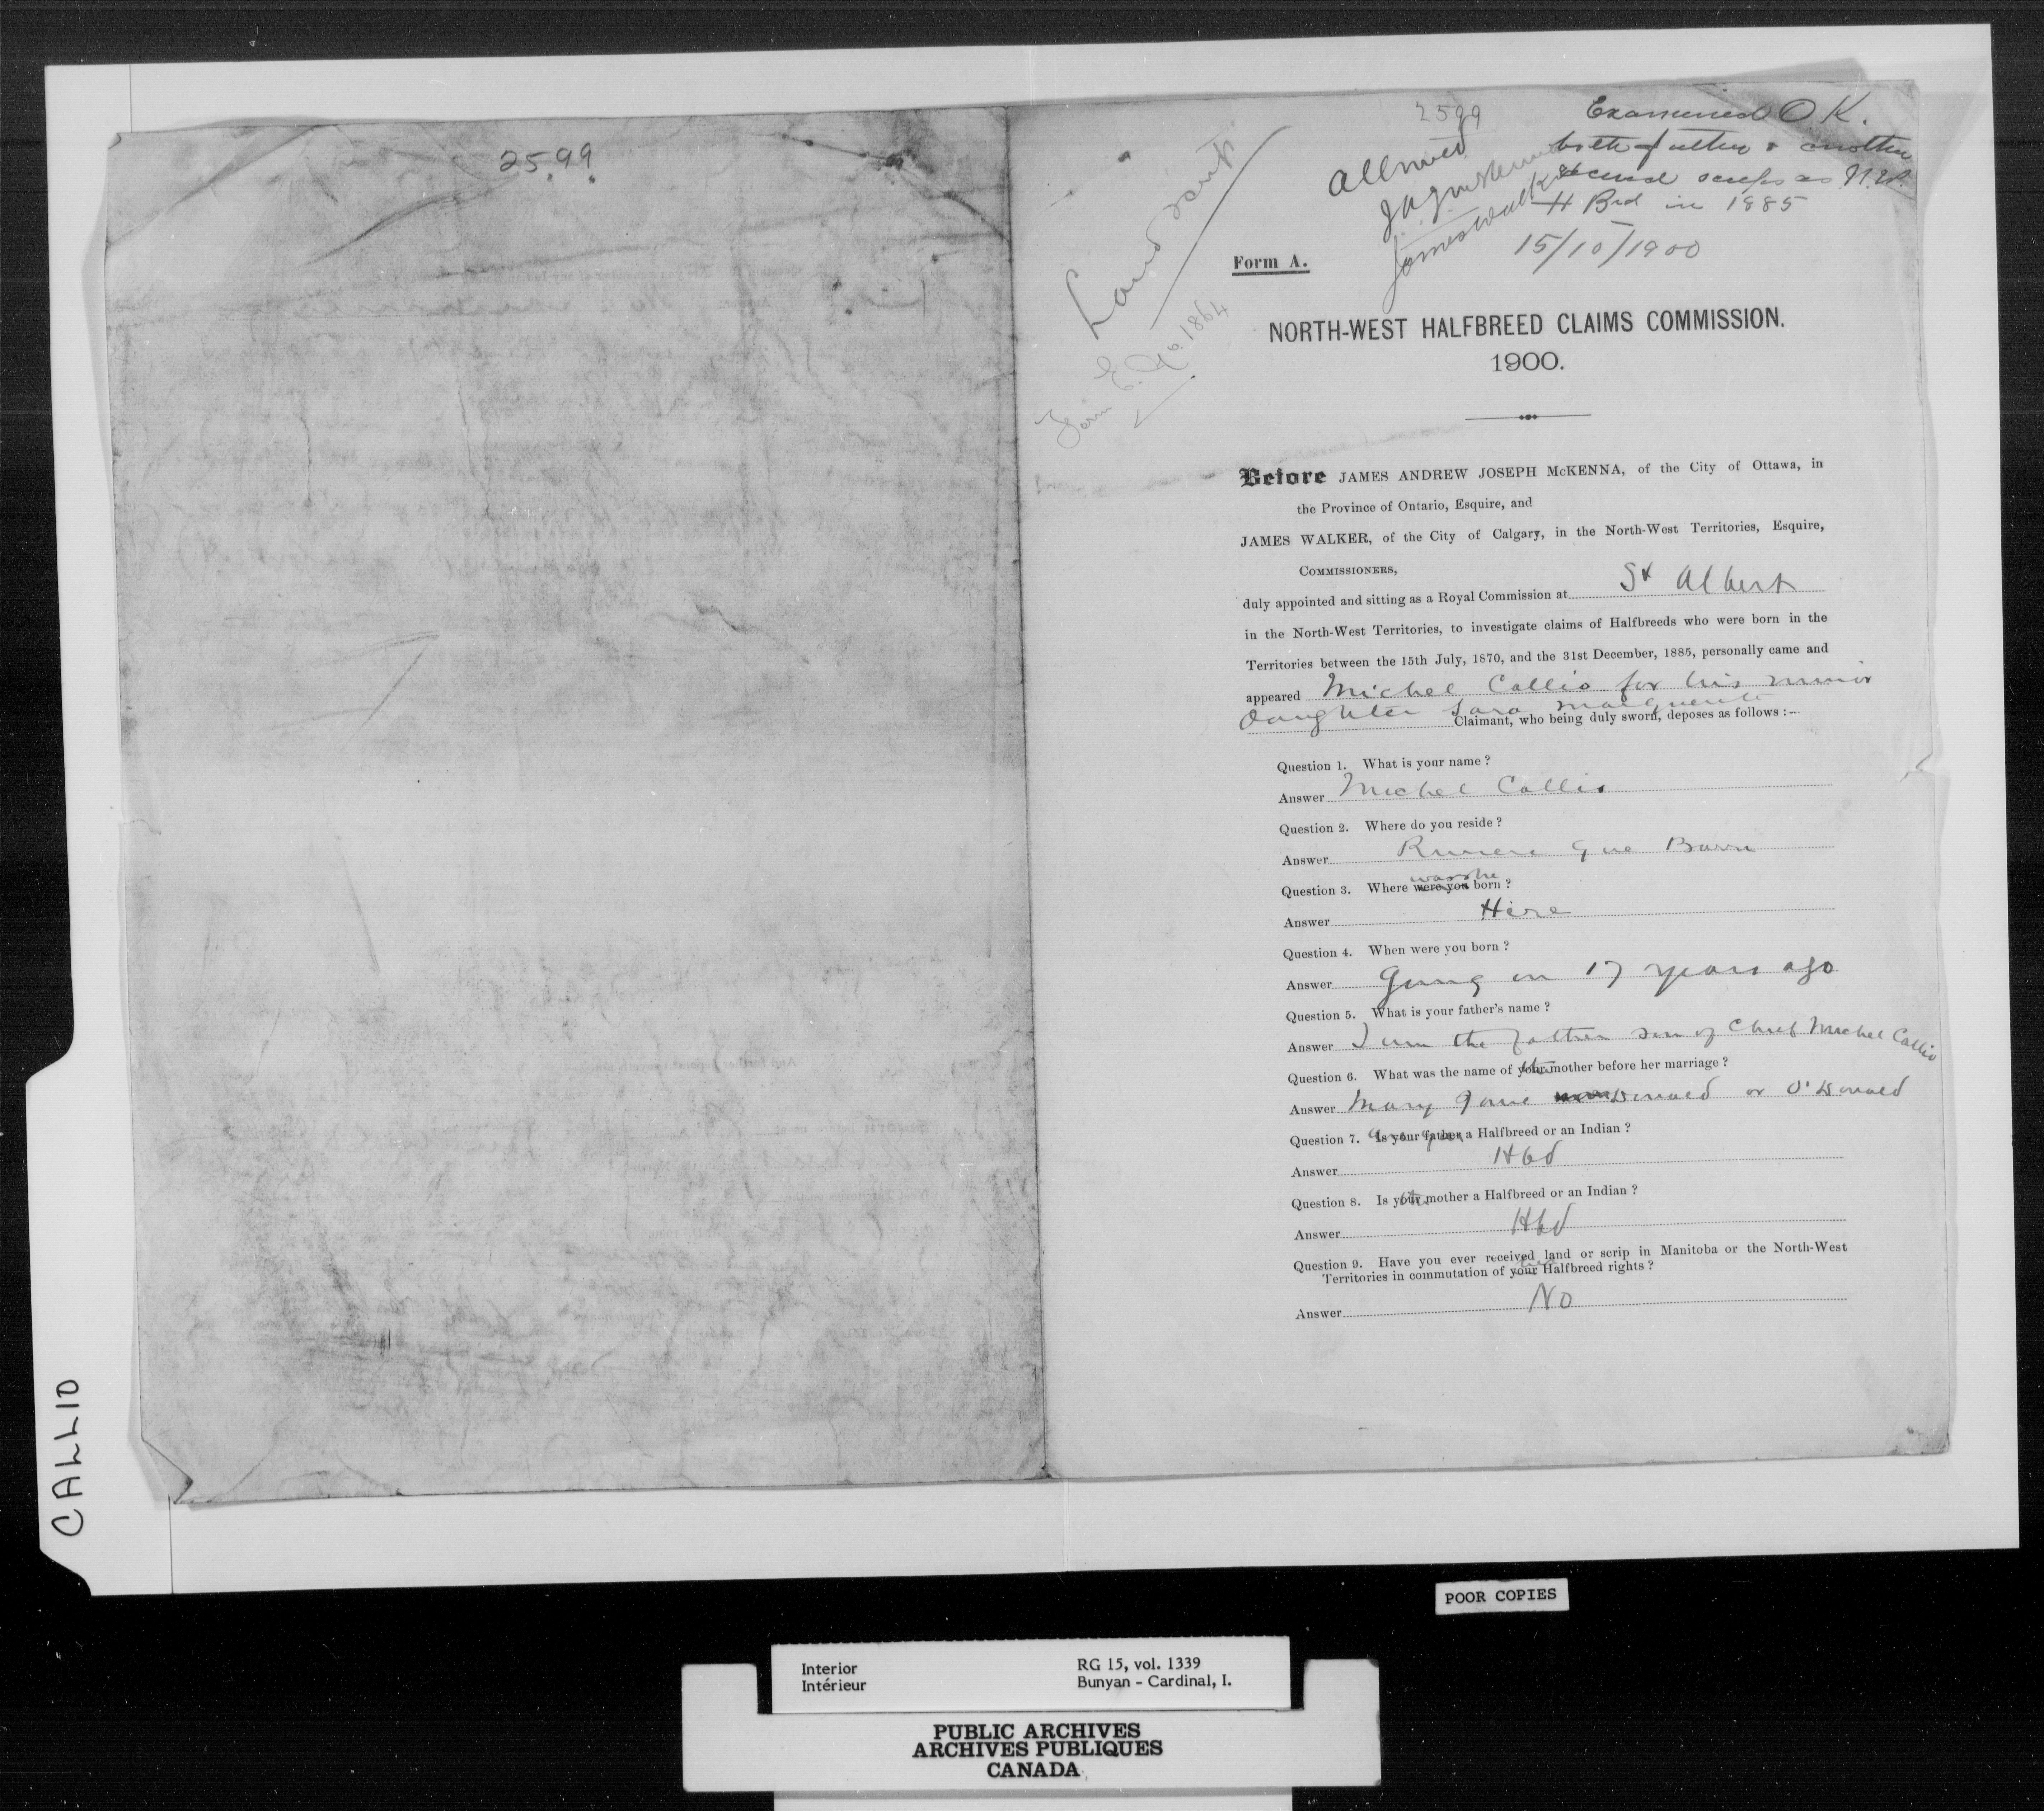 2599
2599
Allowed
James Walker
Examined O K.
both father & mother
scrip as N.W.
H Brd in 1885
15/10/1900
Land
Form E. No. 1864
Form A.
NORTH-WEST HALFBREED CLAIMS COMMISSION.
1900.
Before JAMES ANDREW JOSEPH McKENNA, of the City of Ottawa, in
the Province of Ontario, Esquire, and
JAMES WALKER, of the City of Calgary, in the North-West Territories, Esquire,
COMMISSIONERS,
duly appointed and sitting as a Royal Commission at St Albert
in the North-West Territories, to investigate claims of Halfbreeds who were born in the
Territories between the 15th July, 1870, and the 31st December, 1885, personally came and
appeared Michel Callio for his minor
daughter Sara Marguerite
Claimant, who being duly sworn, deposes as follows :—
Question 1. What is your name ?
Answer Michel Callio
Question 2. Where do you reside ?
Answer Riviere Que Barre
was she
Question 3. Where were you born ?
Answer Here
Question 4. When were you born ?
Answer Going on 17 years ago
Question 5. What is your father's name ?
Answer I am the father son of Chief Michel Callio
Question 6. What was the name of your mother before her marriage ?
Answer Mary Jane Donald or O'Donald
Question 7. Is your father a Halfbreed or an Indian ?
Answer Hbd
Question 8. Is your mother a Halfbreed or an Indian ?
Answer Hbd
Question 9. Have you ever received land or scrip in Manitoba or the North-West
Territories in commutation of your Halfbreed rights ?
Answer No
CALLIO
POOR COPIES
Interior RG 15, vol. 1339
Intérieur Bunyan - Cardinal, I.
PUBLIC ARCHIVES
ARCHIVES PUBLIQUES
CANADA